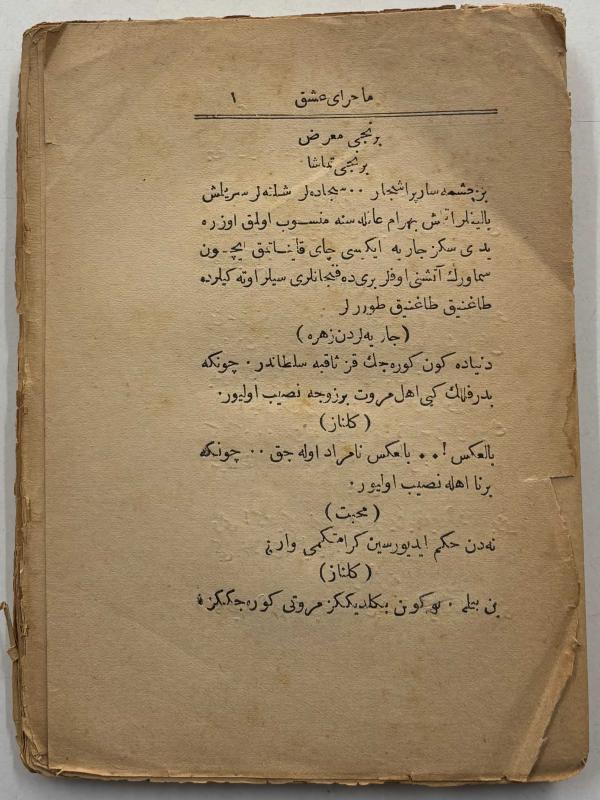 ماجرای عشق ١
برنجی معرض
برنجی تماشا
بر چشمه سار پر اشجار ٠٠ سجاده‌لر شلته‌لر سریلمش
بهرام عائله‌سنه منسوب اولمق اوزره
یدی سکز جاریه ایکیسی چای قایناتمق ایچون
سماورك آتشنی اوفلر بری‌ده فنجانلری سیلر اوته کیلرده
طاغنیق طاغنیق طورر لر
(جاریه‌لردن زهره)
دنیاده کون کوره‌جك قز ثاقبه سلطاندر. چونکه
بدر فلك کبی اهل مروت بر زوجه نصیب اولیور.
(کلناز)
بالعکس! ٠٠ بالعکس نامراد اوله جق ٠٠ چونکه
بر نا اهله نصیب اولیور.
(محبت)
نه‌دن حکم ایدیورسین کرامتکمی وار؟
(کلناز)
بن بیلم. بو کون بکلدیککز مروتی کوره‌جککز